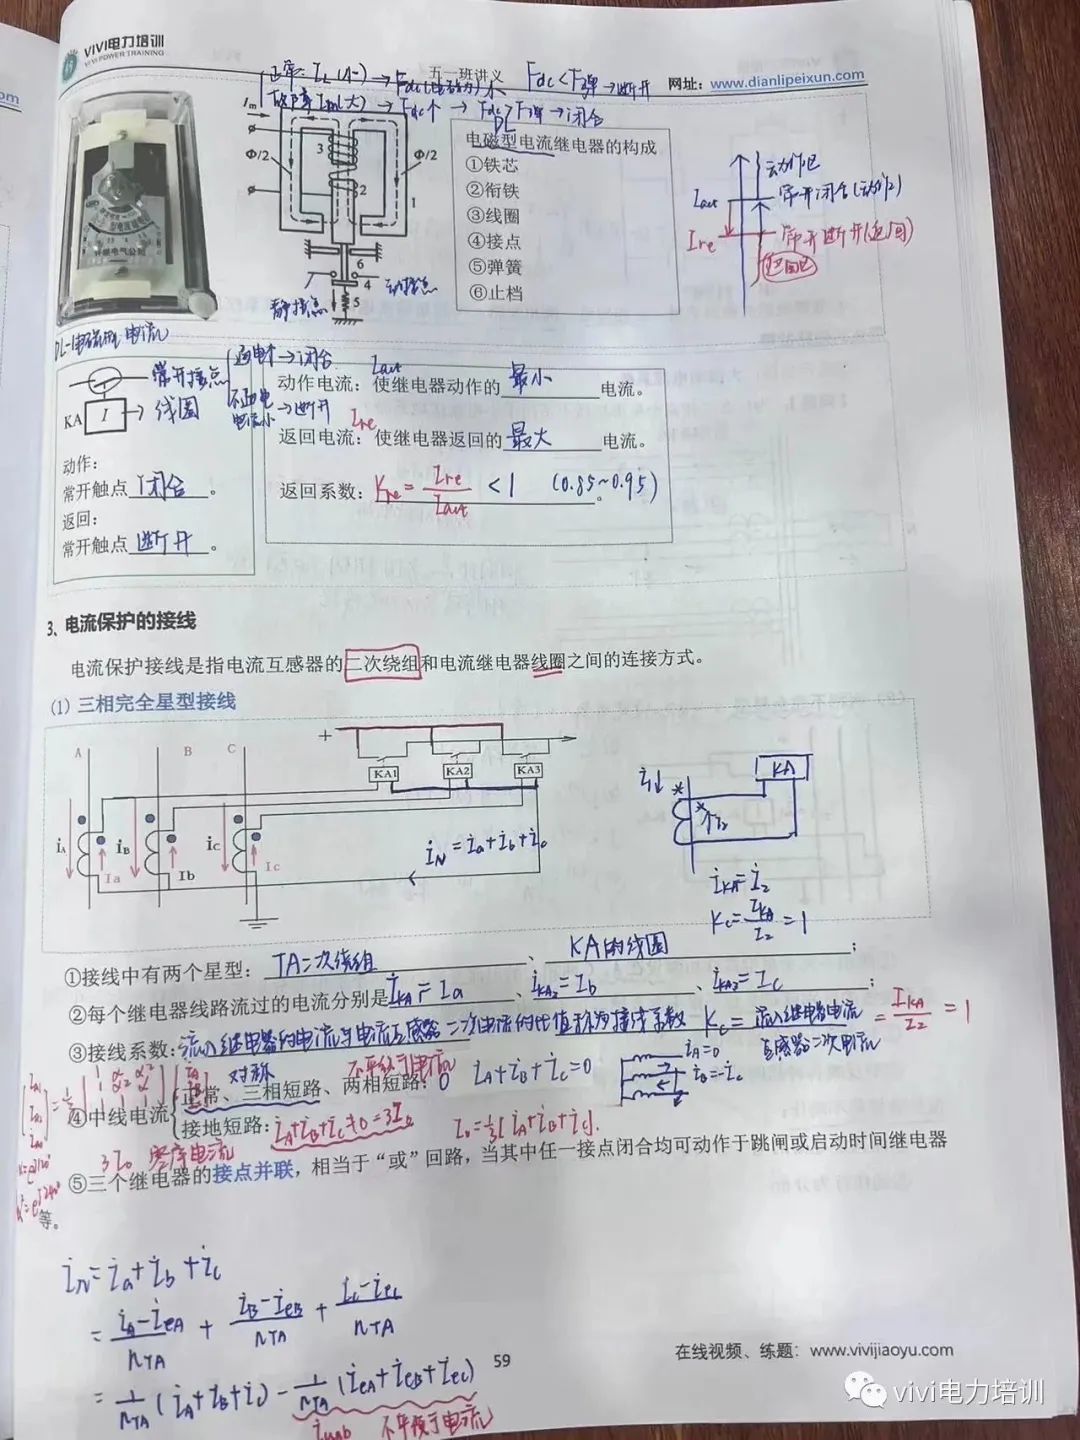 VIVI电力培训
VIVI POWER TRAINING
五一班讲义
网址：www.dianlipeixun.com
om
正常：IL(小)→Fdc(电磁力)小 Fdc<F弹→断开
故障Im(大)→Fdc↑→Fdc>F弹→闭合
DL
Im
Φ/2
Φ/2
3
2
1
6
4
5
动接点
静接点
电磁型电流继电器的构成
①铁芯
②衔铁
③线圈
④接点
⑤弹簧
⑥止档
动作区
Iact 常开闭合(动作)
Ire 常开断开(返回)
返回区
DL-1电磁型 电流
常开接点
通电个→闭合
不通电
电流小→断开
KA I →线圈
动作：
常开触点闭合。
返回：
常开触点断开。
Iact
动作电流：使继电器动作的最小电流。
Ire
返回电流：使继电器返回的最大电流。
返回系数：Kre=Ire/Iact <1 (0.85~0.95)。
3、电流保护的接线
电流保护接线是指电流互感器的二次绕组和电流继电器线圈之间的连接方式。
(1) 三相完全星型接线
A B C
+
KA1 KA2 KA3
İA İB İC
Ia Ib Ic
İN=İa+İb+İc
KA
I↓ * * ↑I2
İKA=İ2
Kc=IKA/I2=1
①接线中有两个星型：TA二次绕组、KA的线圈；
②每个继电器线路流过的电流分别是İKA=Ia、İKA2=Ib、İKA2=Ic；
③接线系数：流入继电器的电流与电流互感器二次电流的比值称为接线系数 Kc=流入继电器电流/互感器二次电流=IKA/I2=1
对称 不平衡电流
④中线电流
正常、三相短路、两相短路：0 İA+İB+İC=0
İA=0
İB=-İC
接地短路：İA+İB+İC≠0=3I0 I0=1/3[İA+İB+İC].
3I0 零序电流
⑤三个继电器的接点并联，相当于“或”回路，当其中任一接点闭合均可动作于跳闸或启动时间继电器
等。
İN=İa+İb+İc
=(İA-İeA)/nTA+(İB-İeB)/nTA+(İC-İeC)/nTA
=1/nTA(İA+İB+İC)-1/nTA(İeA+İeB+İeC)
İunb 不平衡电流
59
在线视频、练题：www.vivijiaoyu.com
vivi电力培训